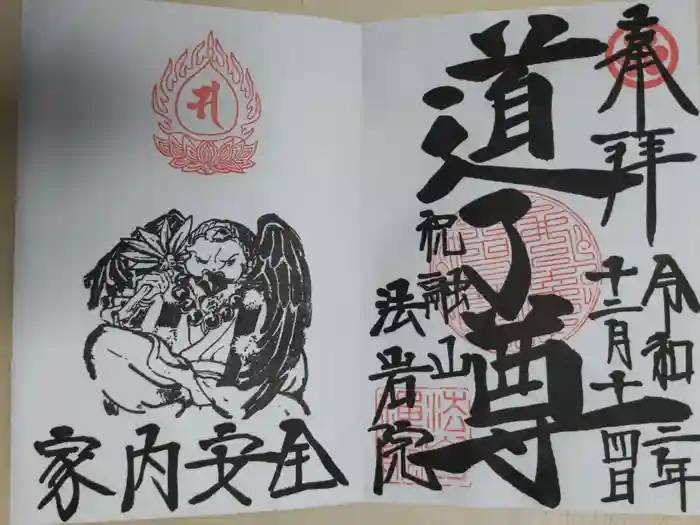 奉拝
令和二年
十二月十四日
道了尊
祝融山
法岩院
家内安全